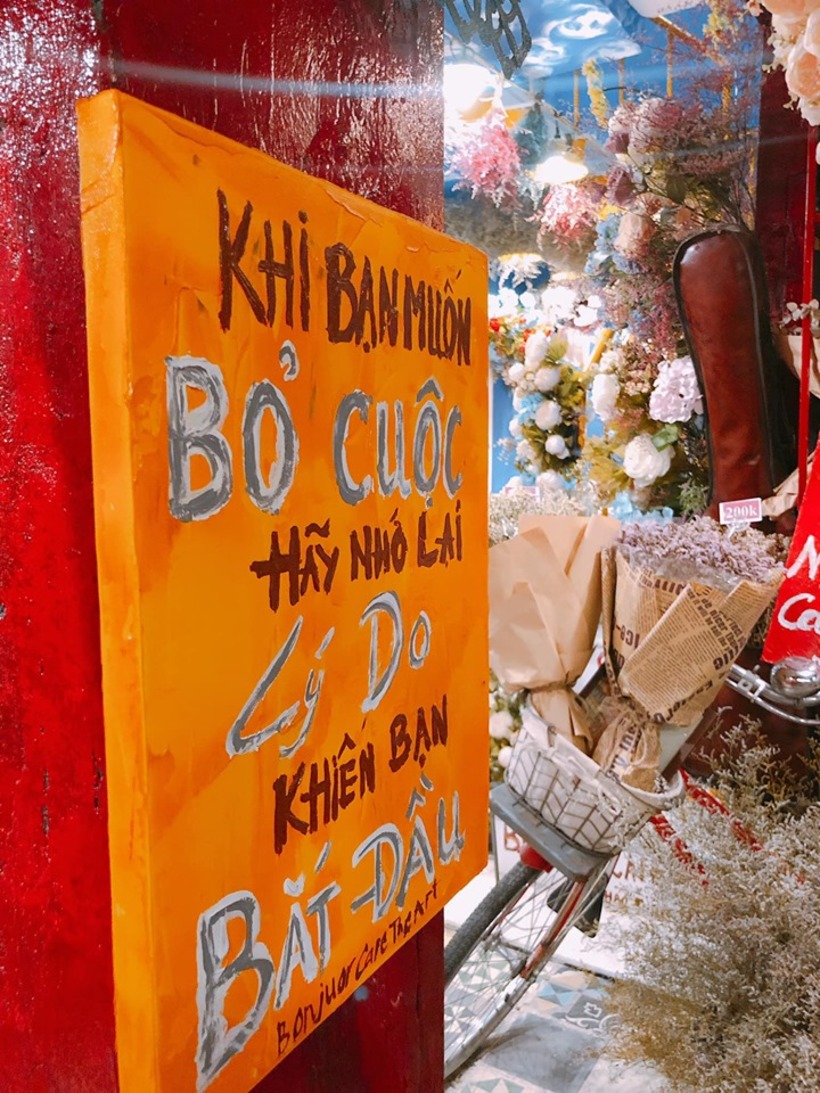 KHI BẠN MUỐN
BỎ CUỘC
HÃY NHỚ LẠI
Lý Do
KHIẾN BẠN
BẮT ĐẦU
Bonjuor Cafe The Art
290k